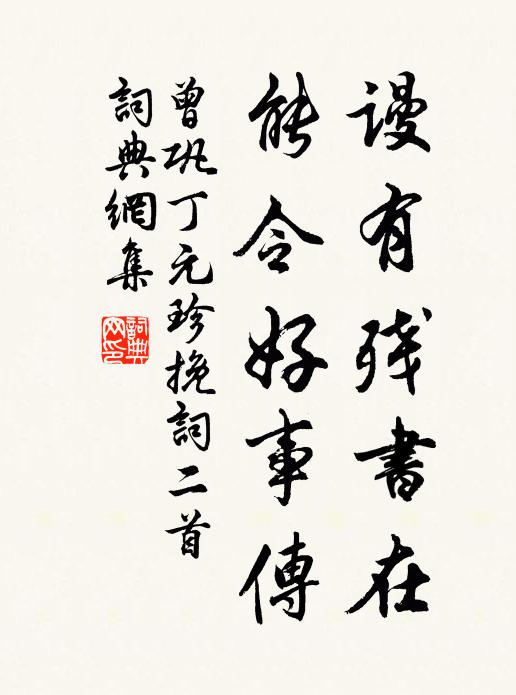 谩有残書在
能令好事傳
曾巩丁元珍挽詞二首
詞典網集
詞典網印